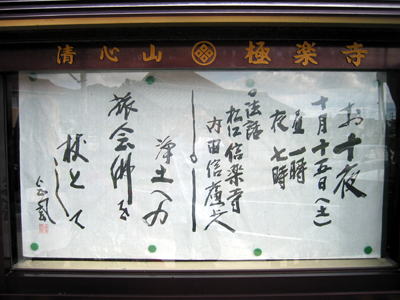 清心山 極楽寺
お十夜
十月十五日(土)
昼一時
夜七時
◎法話
松江信楽寺
内田信廣上人
浄土への
旅 念仏を
杖として